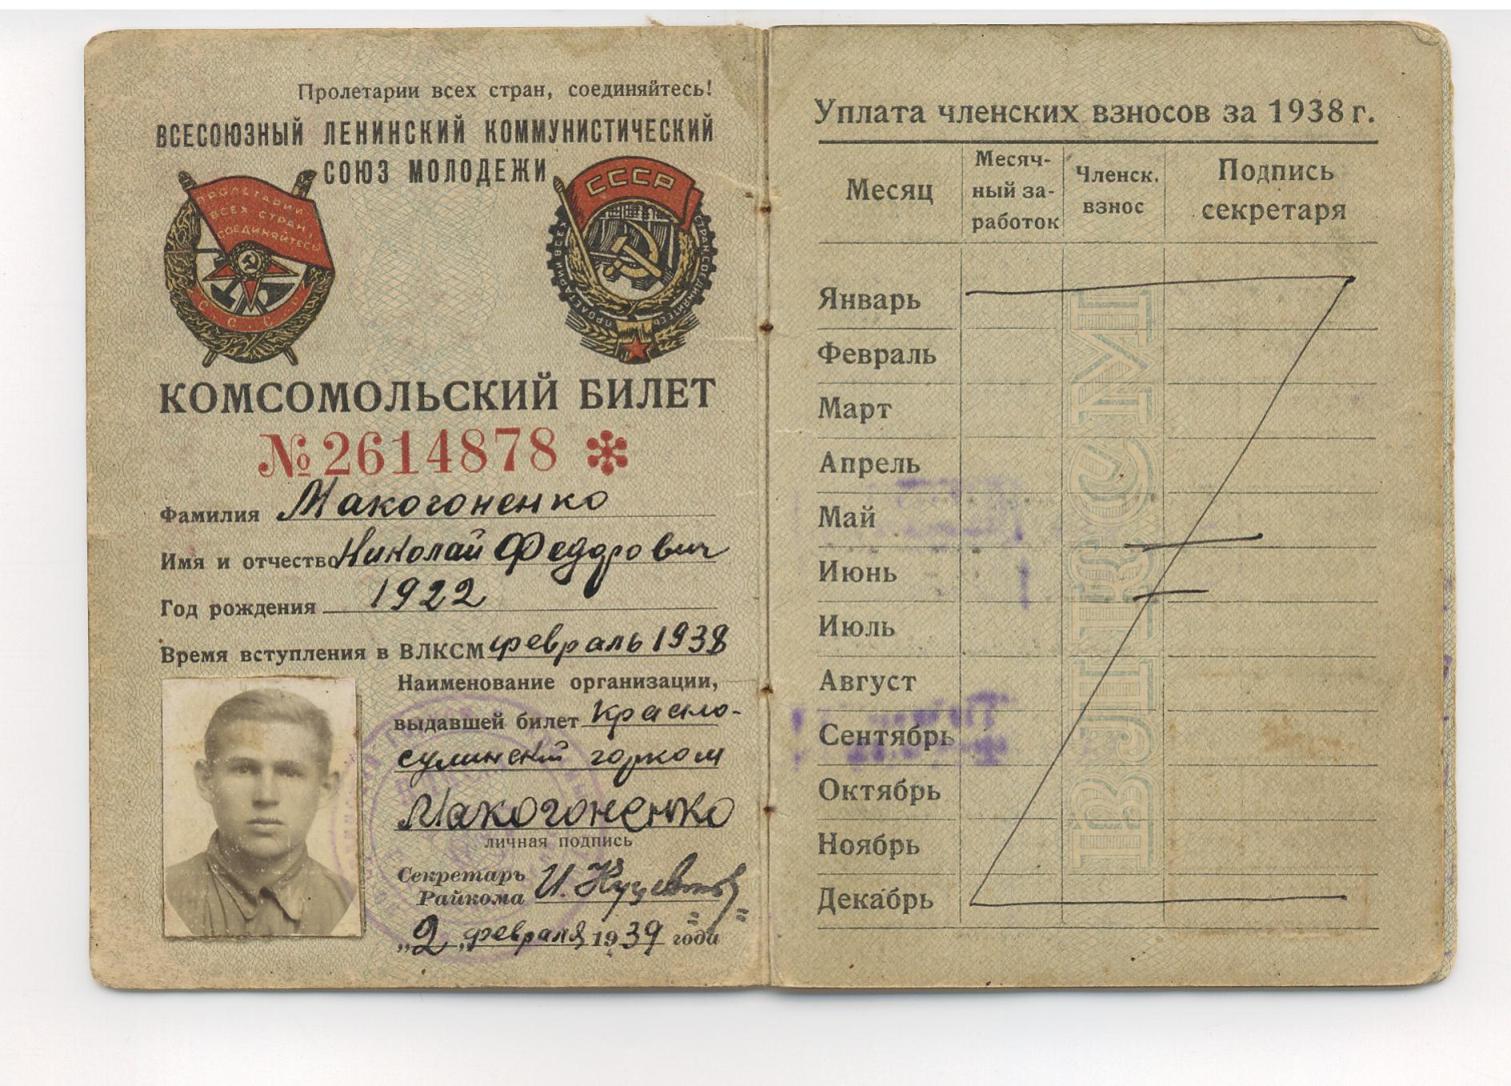 Пролетарии всех стран, соединяйтесь!
ВСЕСОЮЗНЫЙ ЛЕНИНСКИЙ КОММУНИСТИЧЕСКИЙ
СОЮЗ МОЛОДЕЖИ
ПРОЛЕТАРИИ
ВСЕХ СТРАН,
СОЕДИНЯЙТЕСЬ
СССР
КОМСОМОЛЬСКИЙ БИЛЕТ
№2614878 *
Фамилия Макогоненко
Имя и отчество Николай Федорович
Год рождения 1922
Время вступления в ВЛКСМ февраль 1938
Наименование организации,
выдавшей билет Красно-
сулинский горком
Макогоненко
личная подпись
Секретарь
Райкома И.
„2„ февраля 1939 года
Уплата членских взносов за 1938 г.
Месяц Месяч-ный за-работок Членск. взнос Подпись секретаря
Январь
Февраль
Март
Апрель
Май
Июнь
Июль
Август
Сентябрь
Октябрь
Ноябрь
Декабрь
ВЛКСМ